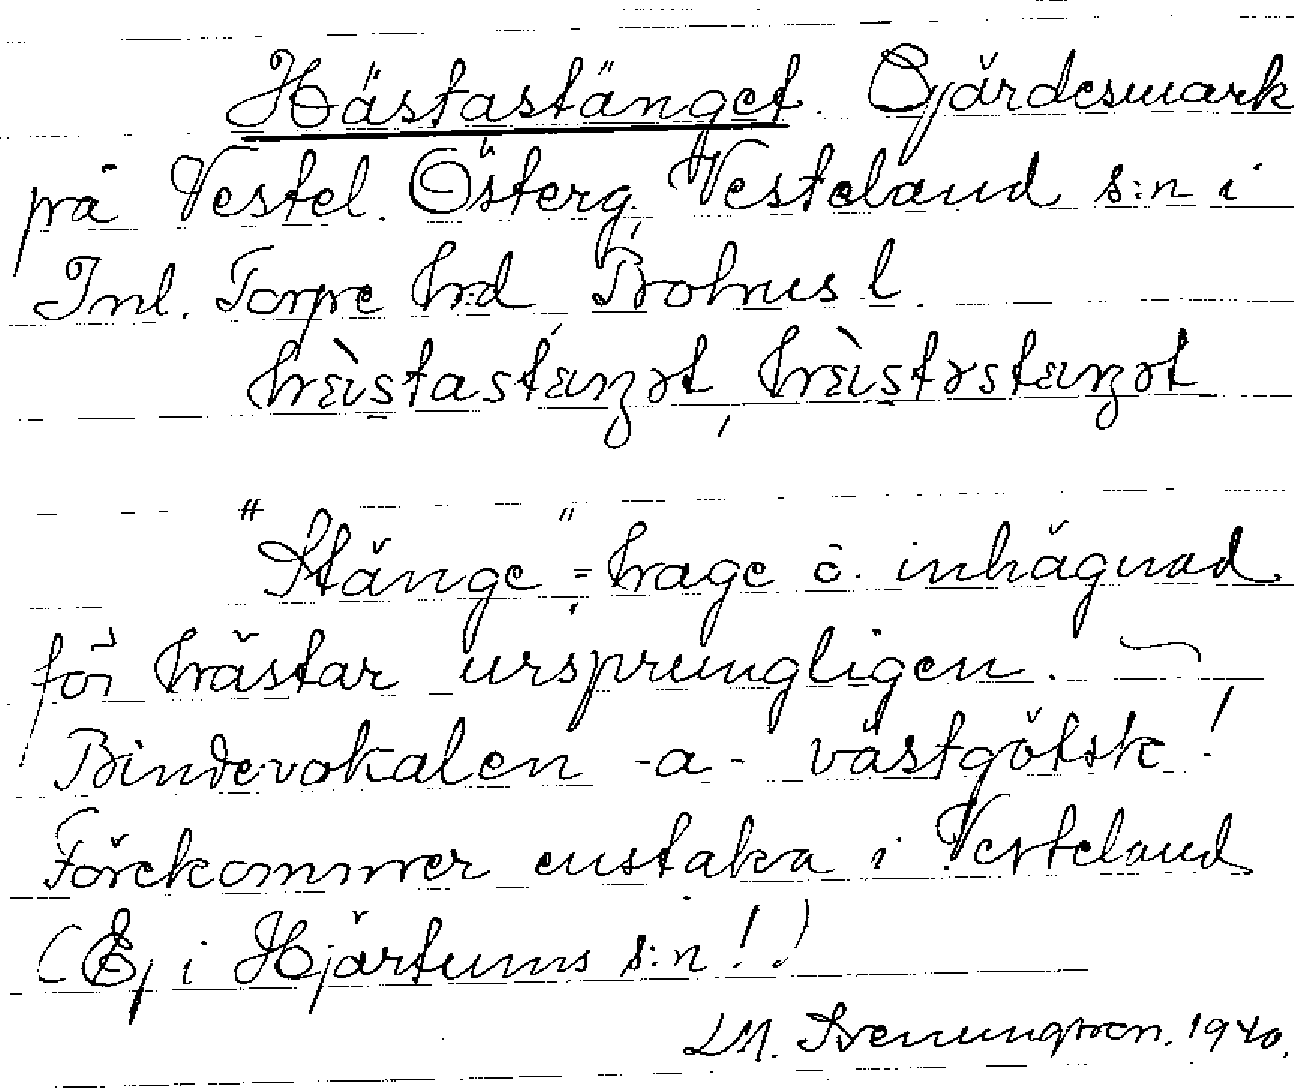 Hästastänget. Gärdesmark
på Vestel. Österg. Vesteland s:n i
Inl. Torpe hrd Bohus l.
"Stänge" = hage o. inhägnad
för hästar ursprungligen. —
Bindevokalen -a- västgötsk!
Förekommer enstaka i Vesteland
(Ej i Hjärtums s:n!)
LM. Svenungsson. 1940.